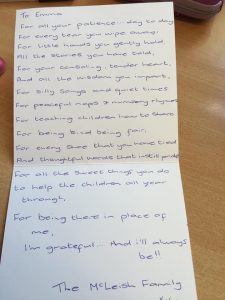 To Emma
For all your patience... day to day
For every tear you wipe away,
For little hands you gently hold,
All the stories you have told,
For your comforting, tender heart,
And all the wisdom you impart,
For silly songs and quiet times
For peaceful naps & nursery rhymes
For teaching children how to share
For being kind being fair,
For every shoe that you have tied
And thoughtful words that instil pride
For all the sweet things you do
to help the children all year
through,
For being there in place of
me,
I'm grateful... And i'll always
be!!
The McLeish Family